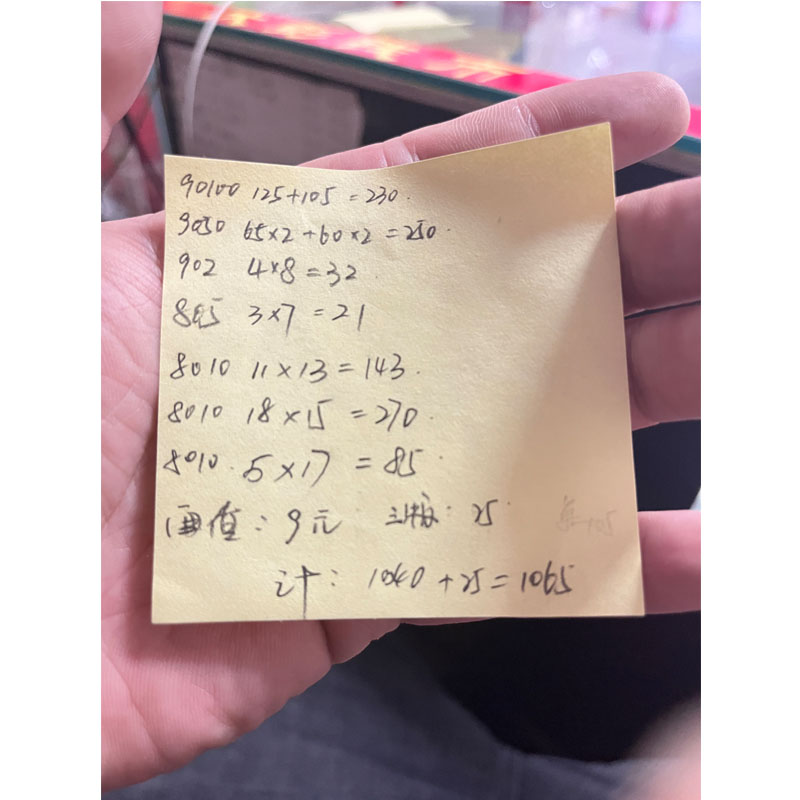 90100 125+105=230.
9050 65×2+60×2=250.
902 4×8=32
805 3×7=21
8010 11×13=143.
8010 18×15=270.
8010. 5×17=85.
面值：9元 : 25
计：1040+25=1065